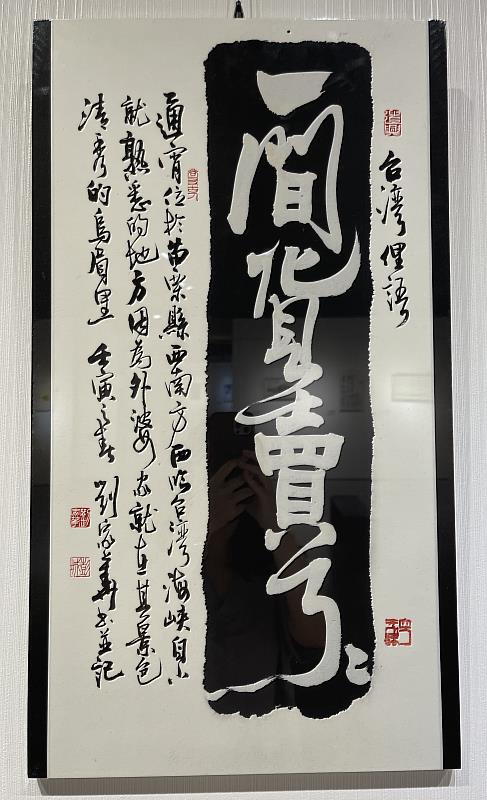 台灣俚語
一間貨賣了々
通宵位於苗栗縣西南方西臨台灣海峽自小
就熟悉的地方因為外婆家就在其景色
清秀的烏眉里 壬寅之春 劉家華書並記